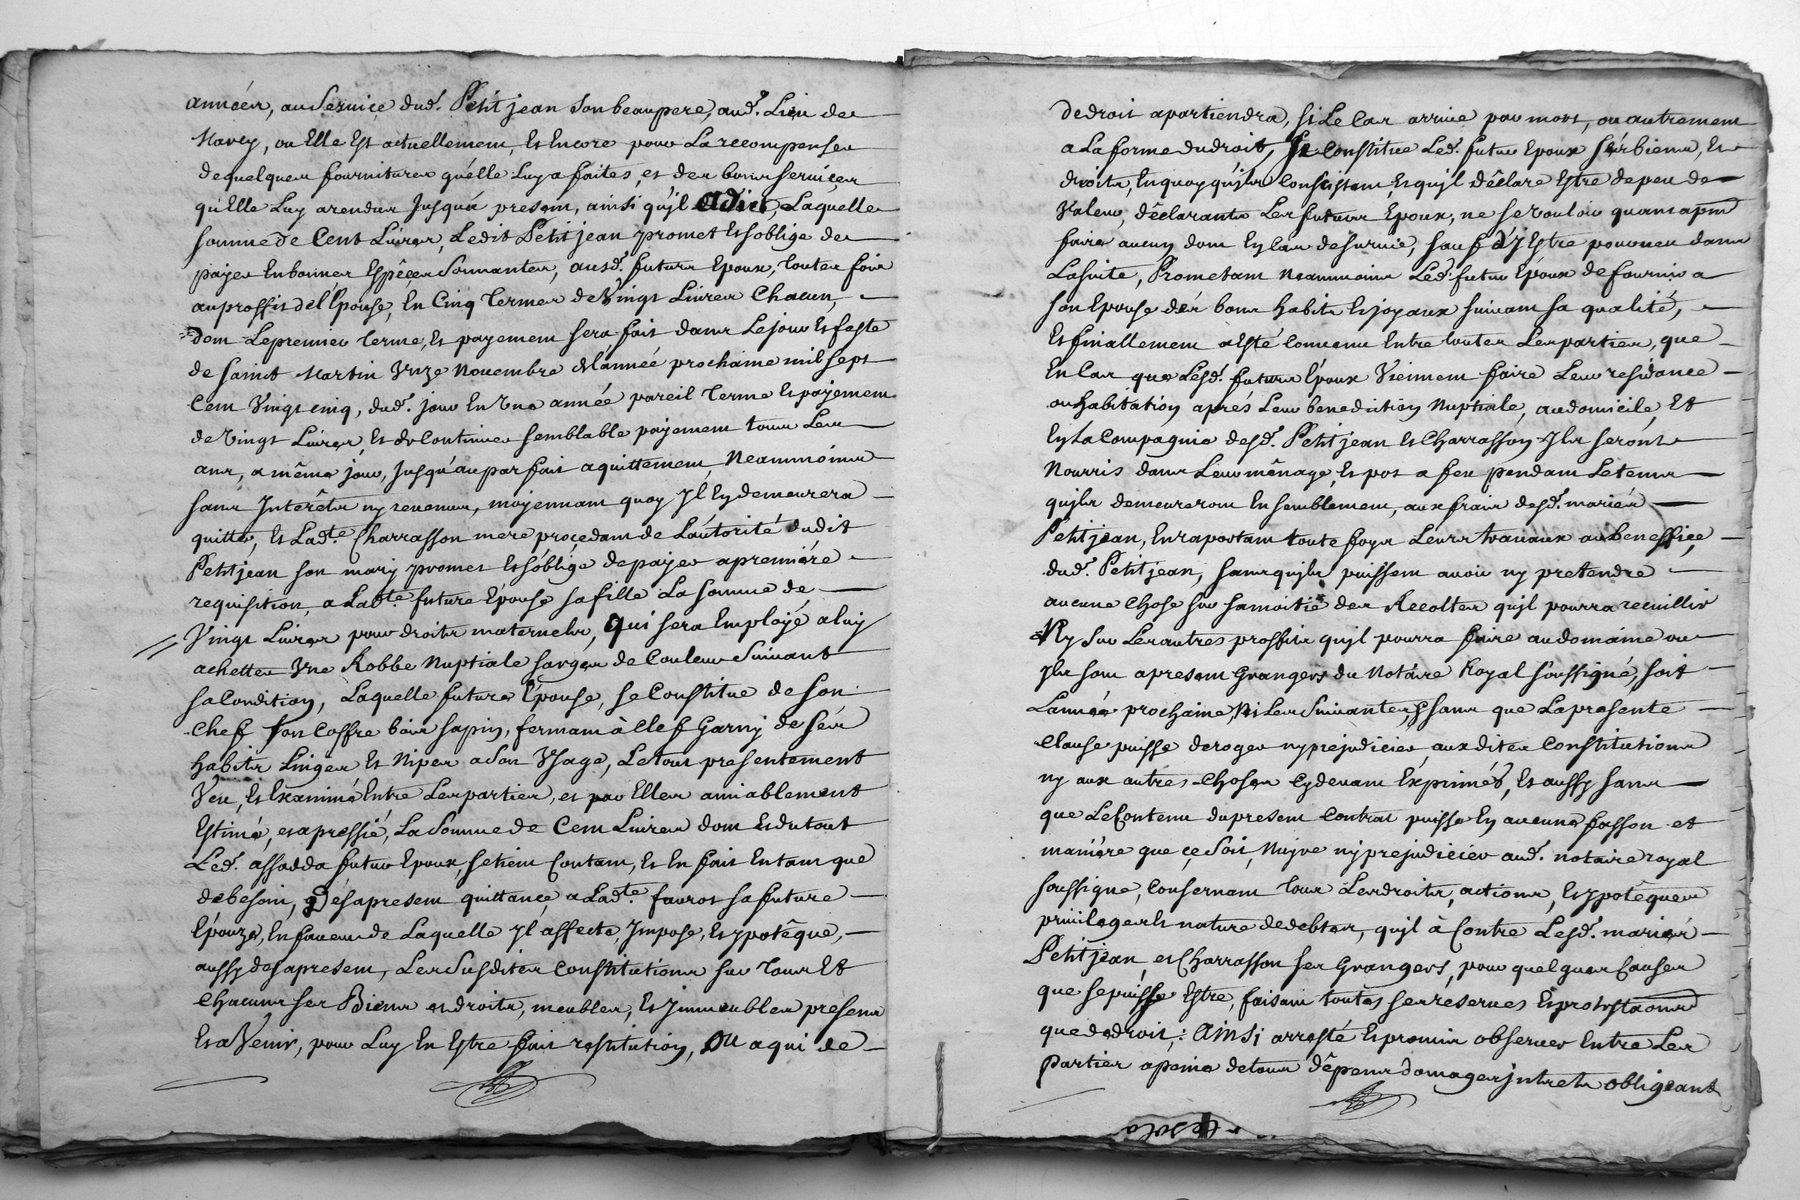 années, au Service dud. Petitjean son beaupere, aud. Lieu de
Marcy, ou Elle Est actuellement, Et Encore pour La recompenser
dequélques fournitures quélle Luy a faites, et des bons services
qu'Elle Luy arendus Jusquá present, ainsi qu'jl a dit, Laquelle
somme de Cent Livres, Ledit Petitjean promet Et soblige de
payer En bonnes Espêces Sonnantes, ausd. futurs Epoux, toutes fois
au proffit del'Epouse, En Cinq Termes de Vingt Livres Chacun,
dont Lepremier terme, Et payement sera fait dans Lejour Et feste
de saint Martin Vnze Novembre de Lannée prochaine mil sept
Cent Vingt cinq, dud. jour En Vne année pareil Terme Et payement
de Vingt Livres, Et de Continuer semblable payement tous Les
ans, a même jour, Jusqu'au parfait aquittement, Neammoins
sans Interêts ny revenus, moyennant quoy Jl En demeurera
quitte, Et Ladte Charrasson mere proçedant de Láutorité dudit
Petitjean son mary promet Et sóblige de payer a première
requisition, a Ladte future Epouse sa fille La somme de
Vingt Livres pour droits maternels, qui sera Employé a luy
achetter Vne Robbe Nuptiale sarge de Couleur Suivant
sa Condition, Laquelle future Epouse, se Constitue de son
Chef Son Coffre bois sapin, fermant à Clef Garny de sés
habits Linges Et Nipes a Son Vsage, Le tout presentement
Veu, Et Examiné Entre Les parties, et par Elles amiablement
Estimé, et apressié, La Somme de Cent Livres dont Et du tout
Led. assadda futur Epoux, se tient Contant, Et En fait En tant que
de besoin, Dés apresent quittance a Ladte fauros sa future
Epouze, En faveur de Laquelle Jl affecte, Impose, Et ypotêque,
aussy des apresent, Les Susdites Constitutions sur Tous Et
Chacuns ses Biens et droits, meubles, Et Jmmeubles presens
Et a Venir, pour Luy En Estre fait restitution, OU a qui de
de droit apartiendra, si Le Cas arrive par mort, ou autrement
a La forme du droit, Se Constitue Led. futur Epoux sés biens, Et
droits, En quoy qu'jls Consistent Et qu'jl déclare Estre de peu de
Valeur, déclarants Les futurs Epoux, ne se vouloir quant apnt
faire aucun don En Cas de survie, sauf d'y Estre pourveu dans
La suite, Prometant Neammoins Led. futur Epoux de fournir a
son Epouse dés bons habits Et joyaux suivant sa qualité,
Et finallement a Esté Convenu Entre toutes Les parties, que
En Cas que Lesd. futurs Epoux Viennent faire Leur residance
ou habitation aprés Leur benediction Nuptiale, au domicile, Et
En La Compagnie desd. Petitjean Et Charrasson Jls seront
Nourris dans Leur ménage, Et pot a feu pendant Le tems
qu'jls demeureront Ensemblement, aux frais desd. mariés
Petitjean, En rapostant toute foys Leurs travaux au beneffice
dud. Petitjean, sans qu'jls puissent avoir ny pretendre
aucune Chose sur sa moitié des Récoltes qu'jl pourra recuillir
Ny sur Les autres proffits qu'jl pourra faire au domaine ou
Jls sont apresent Grangers du Notaire Royal soussigné, soit
Lannée prochaine, Ni Les Suivantes, sans que La presente
Clause puisse deroger ny prejudicier aux dites Constitutions
ny aux autres choses Cy devant Exprimés, Et aussy sans
que Le Contenu du present Contrat puisse En aucune fasson et
manière que ce Soit, Nuyre ny prejudiciér aud. notaire royal
soussigne, Consernant Tous Les droits, actions, Et ypotêques
privileges Et nature de debtes, qu'jl à Contre Lesd. mariés
Petitjean et Charrasson ses Grangers, pour quelques Causes
que se puisse Estre, faisant toutes ses reserves Et protestaons
que de droit : Ainsi arresté Et promis observer Entre Les
Parties a peine de tous dêpens domages jnterets obligeant